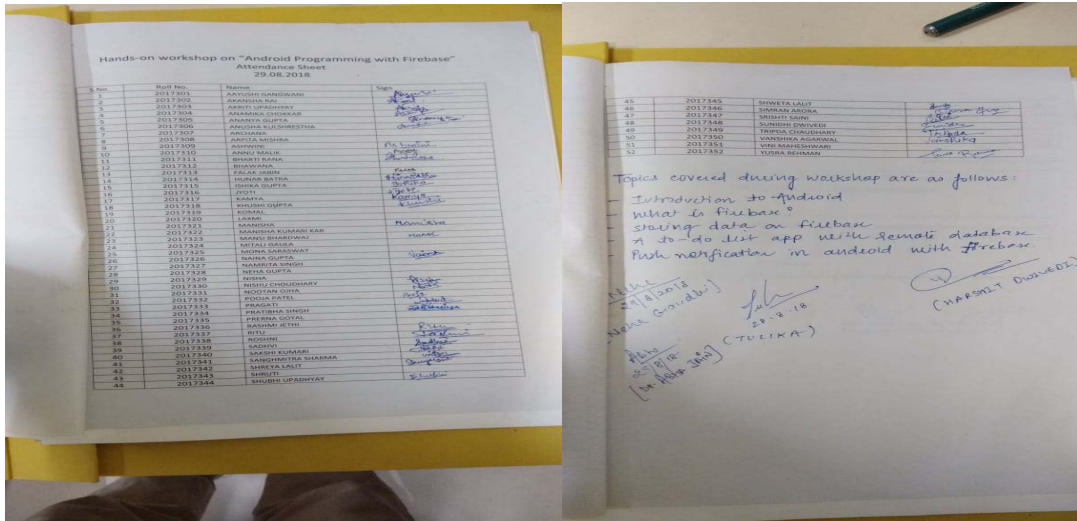 Hands-on workshop on "Android Programming with Firebase"
Attendance Sheet
29.08.2018
S.No. Roll No. Name Sign
1 2017301 AAYUSHI GANGWANI
2 2017302 AKANSHA RAI
3 2017303 AKRITI UPADHYAY
4 2017304 ANAMIKA CHOKKAR
5 2017305 ANANYA GUPTA
6 2017306 ANUSHA KULSHRESTHA
7 2017307 ARCHANA
8 2017308 ARPITA MISHRA
9 2017309 ASHWINI
10 2017310 ANNU MALIK
11 2017311 BHARTI RANA
12 2017312 BHAWANA
13 2017313 FALAK JABIN
14 2017314 HUNAR BATRA
15 2017315 ISHIKA GUPTA
16 2017316 JYOTI
17 2017317 KAMYA
18 2017318 KHUSHI GUPTA
19 2017319 KOMAL
20 2017320 LAXMI
21 2017321 MANISHA Manisha
22 2017322 MANISHA KUMARI KAR
23 2017323 MANSI BHARDWAJ
24 2017324 MITALI GAULA
25 2017325 MONA SARASWAT
26 2017326 NAINA GUPTA
27 2017327 NAMRITA SINGH
28 2017328 NEHA GUPTA
29 2017329 NISHA
30 2017330 NISHU CHOUDHARY
31 2017331 NOOTAN OJHA
32 2017332 POOJA PATEL
33 2017333 PRAGATI
34 2017334 PRATIBHA SINGH
35 2017335 PRERNA GOYAL
36 2017336 RASHMI JETHI
37 2017337 RITU
38 2017338 ROSHNI
39 2017339 SADHVI
40 2017340 SAKSHI KUMARI
41 2017341 SANGHMITRA SHARMA
42 2017342 SHREYA LALIT
43 2017343 SHRUTI
44 2017344 SHUBHI UPADHYAY
45 2017345 SHWETA LALIT
46 2017346 SIMRAN ARORA
47 2017347 SRISHTI SAINI
48 2017348 SUNIDHI DWIVEDI
49 2017349 TRIPDA CHAUDHARY Tripda
50 2017350 VANSHIKA AGARWAL Vanshika
51 2017351 VINI MAHESHWARI
52 2017352 YUSRA REHMAN
Topics covered during workshop are as follows:
- Introduction to Android
- What is firebase?
- storing data on firebase
- A to-do list app with remote database
- Push notification in android with Firebase
Neha
29/8/2018
[Neha Gosidhi]
28.8.18
(TULIKA)
(HARSHIT DWIVEDI)
29/8/18
[Dr. ABHA JAIN]